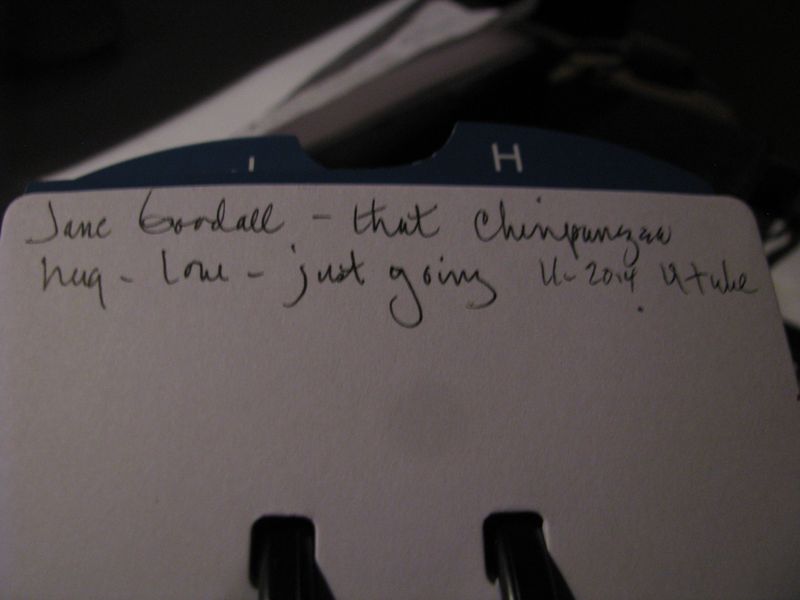 I H
Jane Goodall - that Chinpanzee
hug - love - just going 11-2014 Utube